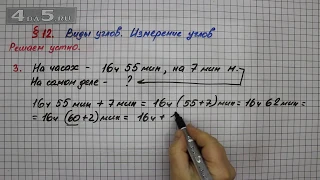 4DA5.RU
§ 12. Виды углов. Измерение углов
Решаем устно.
3. На часах - 16ч 55 мин, на 7 мин м.
На самом деле - ?
16ч 55 мин + 7 мин = 16ч (55+7) мин = 16ч 62 мин =
= 16ч (60+2) мин = 16ч + 1